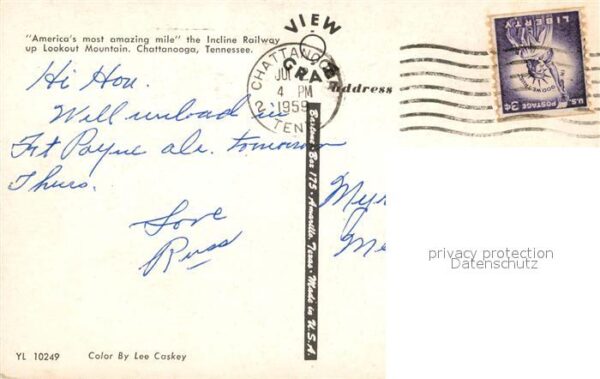 "America's most amazing mile" the Incline Railway
up Lookout Mountain. Chattanooga, Tennessee.
VIEW
GRAM
Address
CHATTANOOGA
4 PM
1959
TENN
LIBERTY
IN GOD WE TRUST
U.S. POSTAGE 3¢
Hi Hon.
Will unload in
Fort Payne ala. tomorrow
Thurs.
Love
Russ
Box 175 · Amarillo, Texas · Made in U.S.A.
privacy protection
Datenschutz
YL 10249 Color By Lee Caskey